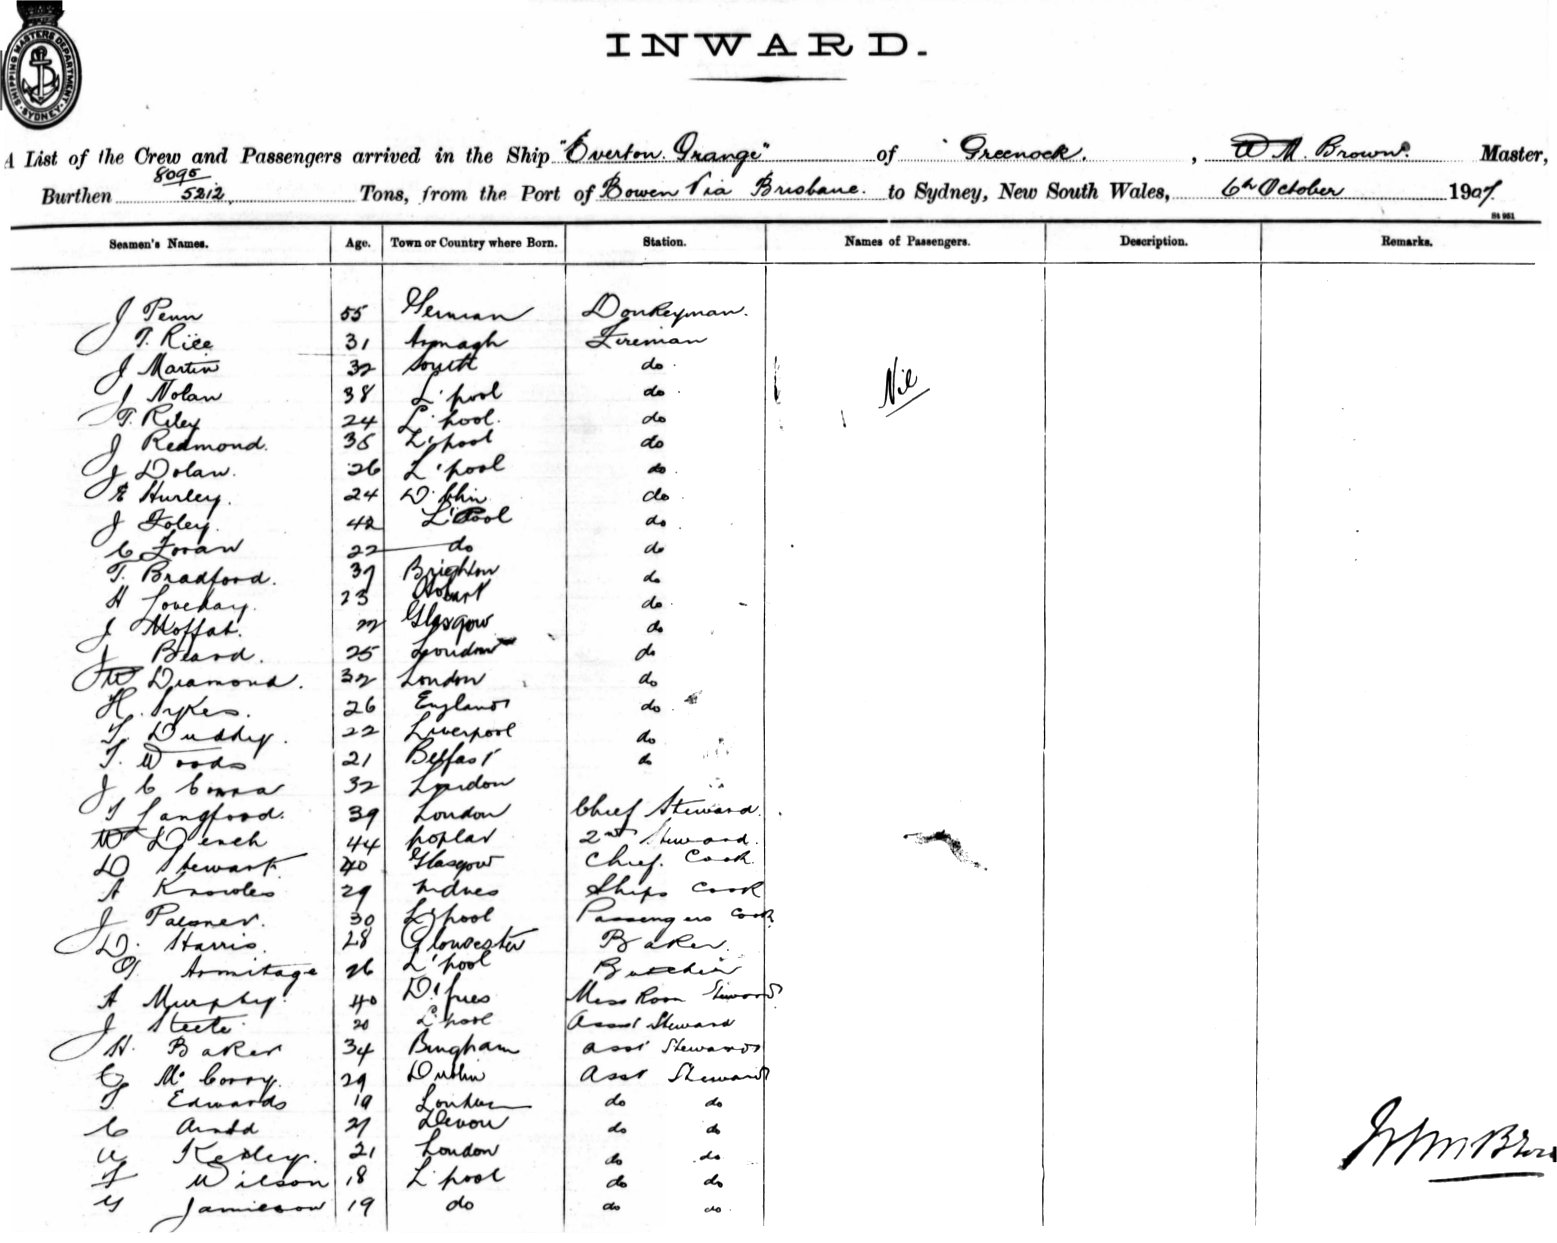 SHIPPING MASTERS DEPARTMENT
SYDNEY
INWARD.
A List of the Crew and Passengers arrived in the Ship "Everton Grange" of Greenock, W M. Brown. Master,
8095
Burthen 5212 Tons, from the Port of Bowen Via Brisbane. to Sydney, New South Wales, 6th October 1907.
Seamen's Names. Age. Town or Country where Born. Station. Names of Passengers. Description. Remarks.
J Penn 55 German Donkeyman.
T. Rice 31 Armagh Fireman
J Martin 32 South do
J Nolan 38 L'pool do
Nil
T. Riley 24 L'pool. do
J Redmond. 35 L'pool do
J Dolan. 26 L'pool do
E Hurley. 24 D'blin do
J Foley. 42 L'Pool do
C Foran 22 do do
T. Bradford. 37 Brighton do
H Loveday. 23 Hobart do
J Moffat. 22 Glasgow do
J Beard. 25 London do
W Diamond. 32 London do
H. Sykes. 26 England do
T. Duddy. 22 Liverpool do
T. Woods 21 Belfast do
J C 32 London
T Langford. 39 London Chief Steward.
W Dench 44 poplar 2nd Steward.
D Stewart. 40 Glasgow Chief. Cook
A Knowles 29 Ships Cook
J 30 L'pool Passengers Cook
D. Harris. 28 Gloucester Baker.
G Armitage 26 L'pool Butcher
A Murphy. 40 Mess Room Steward
J 20 L'pool Asst Steward
H. Baker 34 Bingham Asst Steward
C Mc Corry. 29 Dublin Asst Steward
T. Edwards 19 London do do
C 27 Devon do do
21 London do do
F Wilson 18 L'pool do do
G Jamieson 19 do do do
W M Brown